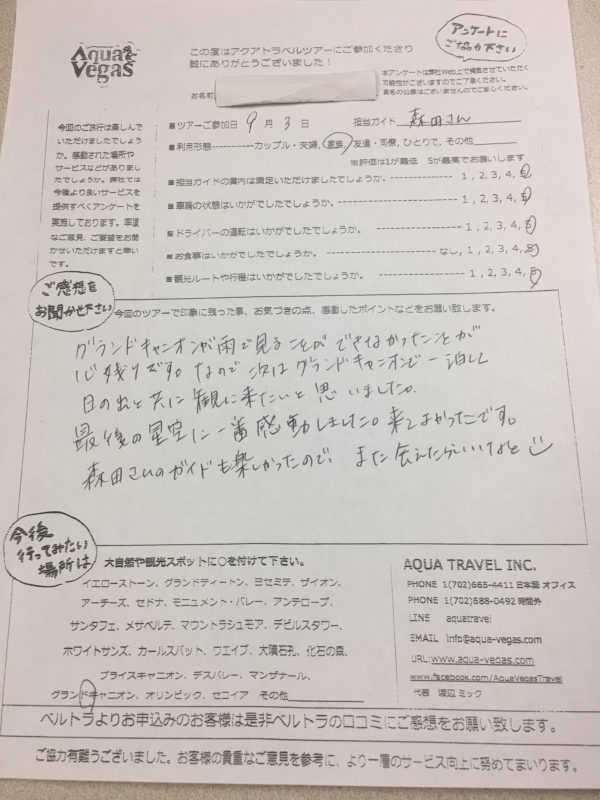 Aqua Vegas
この度はアクアトラベルツアーにご参加くださり
誠にありがとうございました！
アンケートにご協力下さい
本アンケートは弊社Web上で掲載させていただく
可能性がございますのでご了承ください。
実名の公表はございませんのでご安心ください。
お名前
今回のご旅行は楽しんで
いただけましたでしょう
か。感動された場所や
サービスなどがありまし
たでしょうか。弊社では
今後より良いサービスを
提供すべくアンケートを
実施しております。率直
なご意見、ご要望をお聞
かせいただけますと幸い
です。
■ツアーご参加日 9月3日 担当ガイド 森田さん
■利用形態-----------カップル・夫婦, 家族, 友達・同僚, ひとりで, その他
※評価は1が最低 5が最高でお願いします
■担当ガイドの案内は満足いただけましたでしょうか。---------- 1, 2, 3, 4, 5
■車輌の状態はいかがでしたでしょうか。---------- 1, 2, 3, 4, 5
■ドライバーの運転はいかがでしたでしょうか。---------- 1, 2, 3, 4, 5
■お食事はいかがでしたでしょうか。---------- なし, 1, 2, 3, 4, 5
■観光ルートや行程はいかがでしたでしょうか。---------- 1, 2, 3, 4, 5
ご感想をお聞かせ下さい
今回のツアーで印象に残った事、お気づきの点、感動したポイントなどをお願い致します。
グランドキャニオンが雨で見ることができなかったことが
心残りです。なので次はグランドキャニオンで一泊して
日の出と共に観に来たいと思いました。
最後の星空に一番感動しました。来てよかったです。
森田さんのガイドも楽しかったので、また会えたらいいなと
今後行ってみたい場所は
大自然や観光スポットに○を付けて下さい。
イエローストーン、グランドティートン、ヨセミテ、ザイオン、
アーチーズ、セドナ、モニュメント・バレー、アンテロープ、
サンタフェ、メサベルテ、マウントラシュモア、デビルスタワー、
ホワイトサンズ、カールスバット、ウエイブ、大隕石孔、化石の森、
ブライスキャニオン、デスバレー、マンザナール、
グランドキャニオン、オリンピック、セコイア その他
AQUA TRAVEL INC.
PHONE 1(702)665-4411 日本語 オフィス
PHONE 1(702)688-0492 時間外
LINE aquatravel
EMAIL info@aqua-vegas.com
URL:www.aqua-vegas.com
www.facebook.com/AquaVegasTravel
代表 渡辺 ミック
ベルトラよりお申込みのお客様は是非ベルトラの口コミにご感想をお願い致します。
ご協力有難うございました。お客様の貴重なご意見を参考に、より一層のサービス向上に努めてまいります。